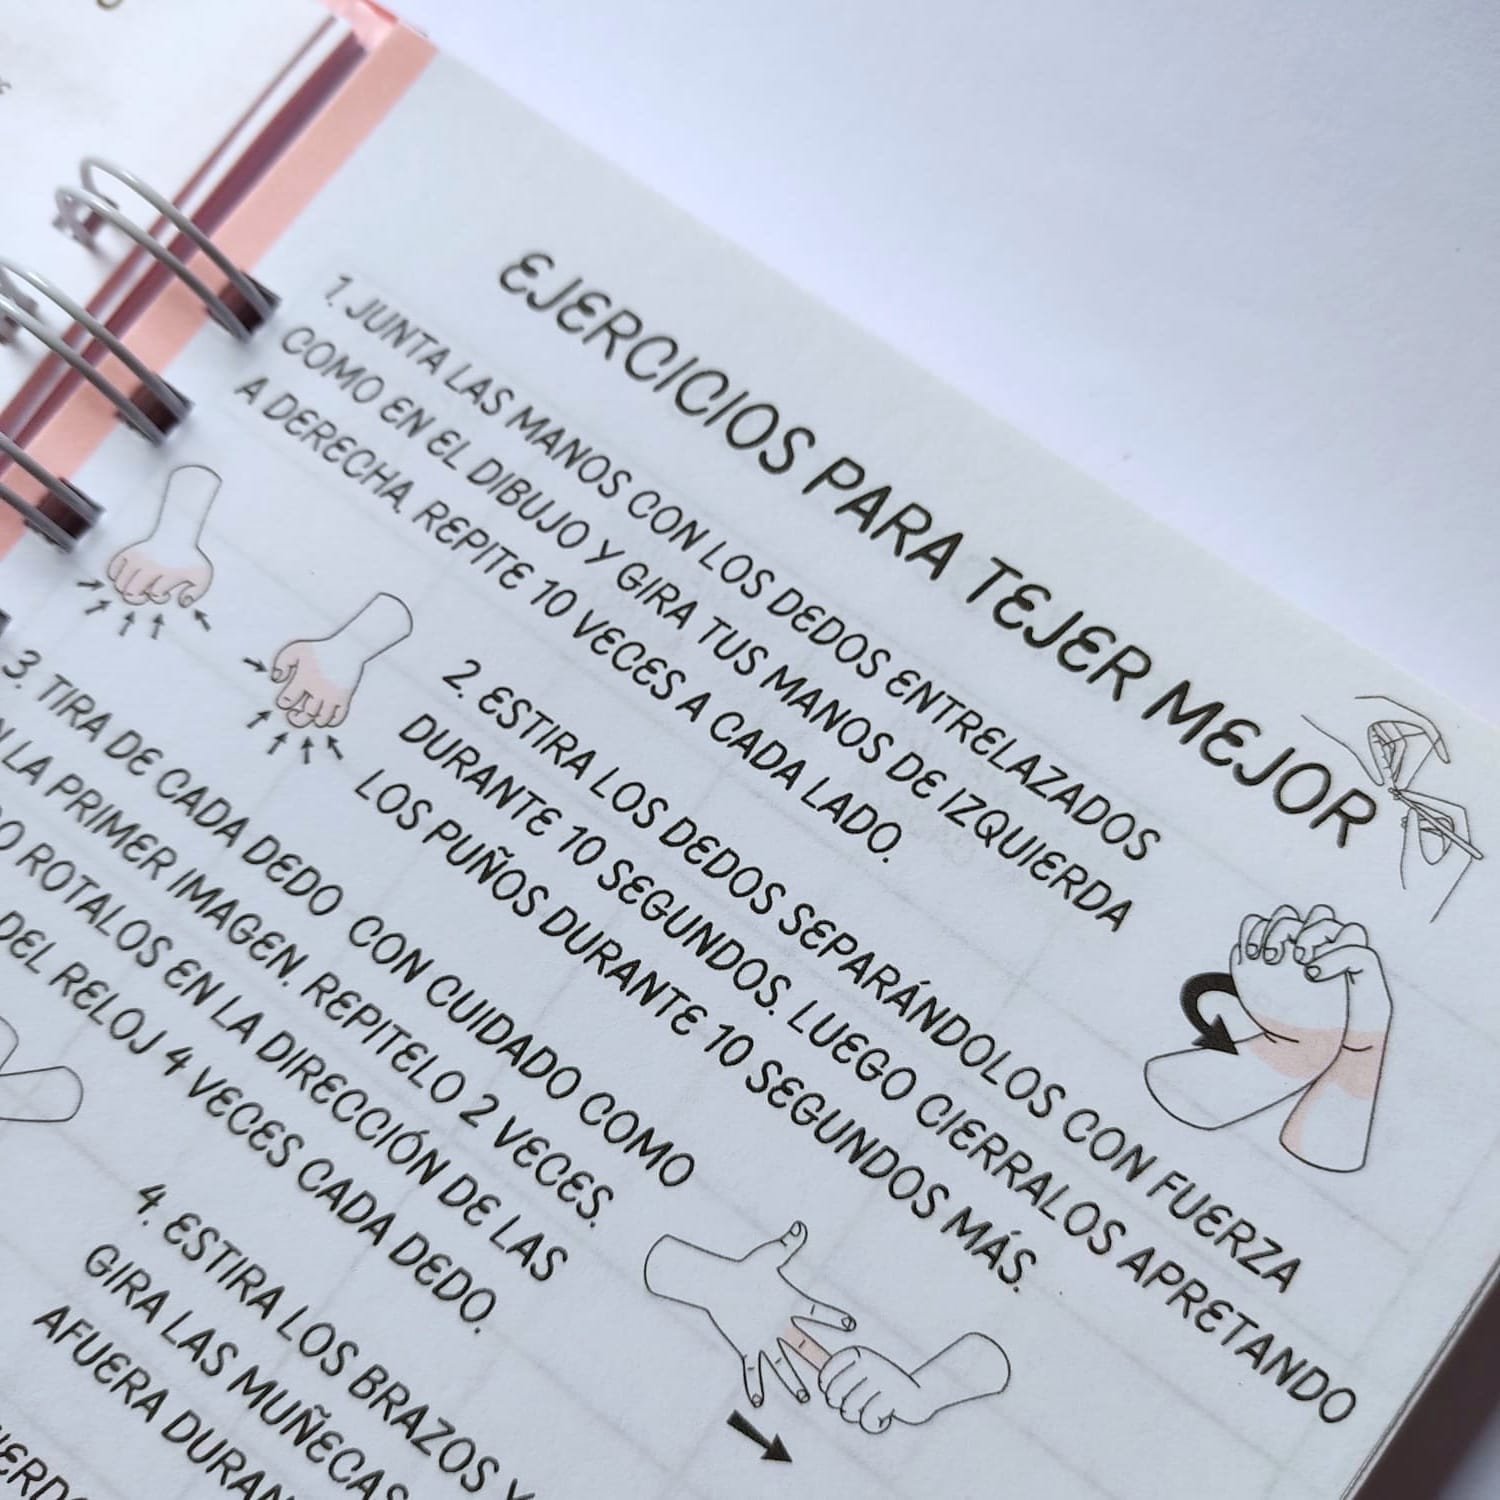 EJERCICIOS PARA TEJER MEJOR
1. JUNTA LAS MANOS CON LOS DEDOS ENTRELAZADOS
COMO EN EL DIBUJO Y GIRA TUS MANOS DE IZQUIERDA
A DERECHA. REPITE 10 VECES A CADA LADO.
2. ESTIRA LOS DEDOS SEPARÁNDOLOS CON FUERZA
DURANTE 10 SEGUNDOS. LUEGO CIERRALOS APRETANDO
LOS PUÑOS DURANTE 10 SEGUNDOS MÁS.
3. TIRA DE CADA DEDO CON CUIDADO COMO
LA PRIMER IMAGEN. REPITELO 2 VECES.
ROTALOS EN LA DIRECCIÓN DE LAS
DEL RELOJ 4 VECES CADA DEDO.
4. ESTIRA LOS BRAZOS Y
GIRA LAS MUÑECAS
AFUERA